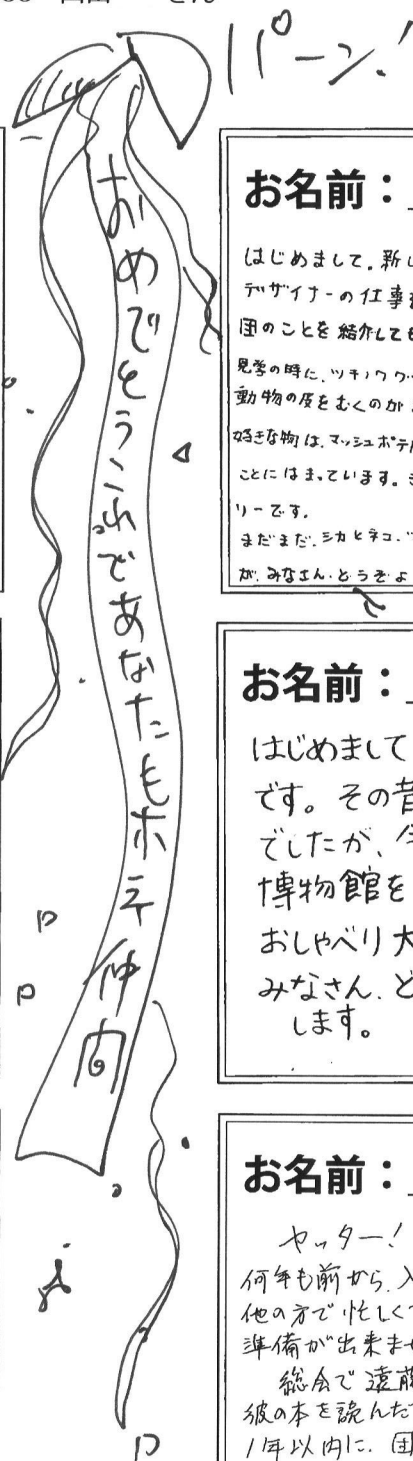 パーン!
おめでとうこれであなたもホネ仲間
お名前:
はじめまして。新し
デザイナーの仕事
国のことを紹介しても
見学の時に、ツチノウ
動物の皮をむくのか
好きな物は、マッシュポテ
ことにはまっています。
リーです。
まだまだ、シカとネコ、
が、みなさん、どうぞよ
お名前:
はじめまして
です。その昔
でしたが、今
博物館を
おしゃべり大
みなさん、ど
します。
お名前:
ヤッター!
何年も前から、入
他の方で忙しく
準備が出来ませ
総会で遠藤
彼の本を読んだ
1年以内に、団